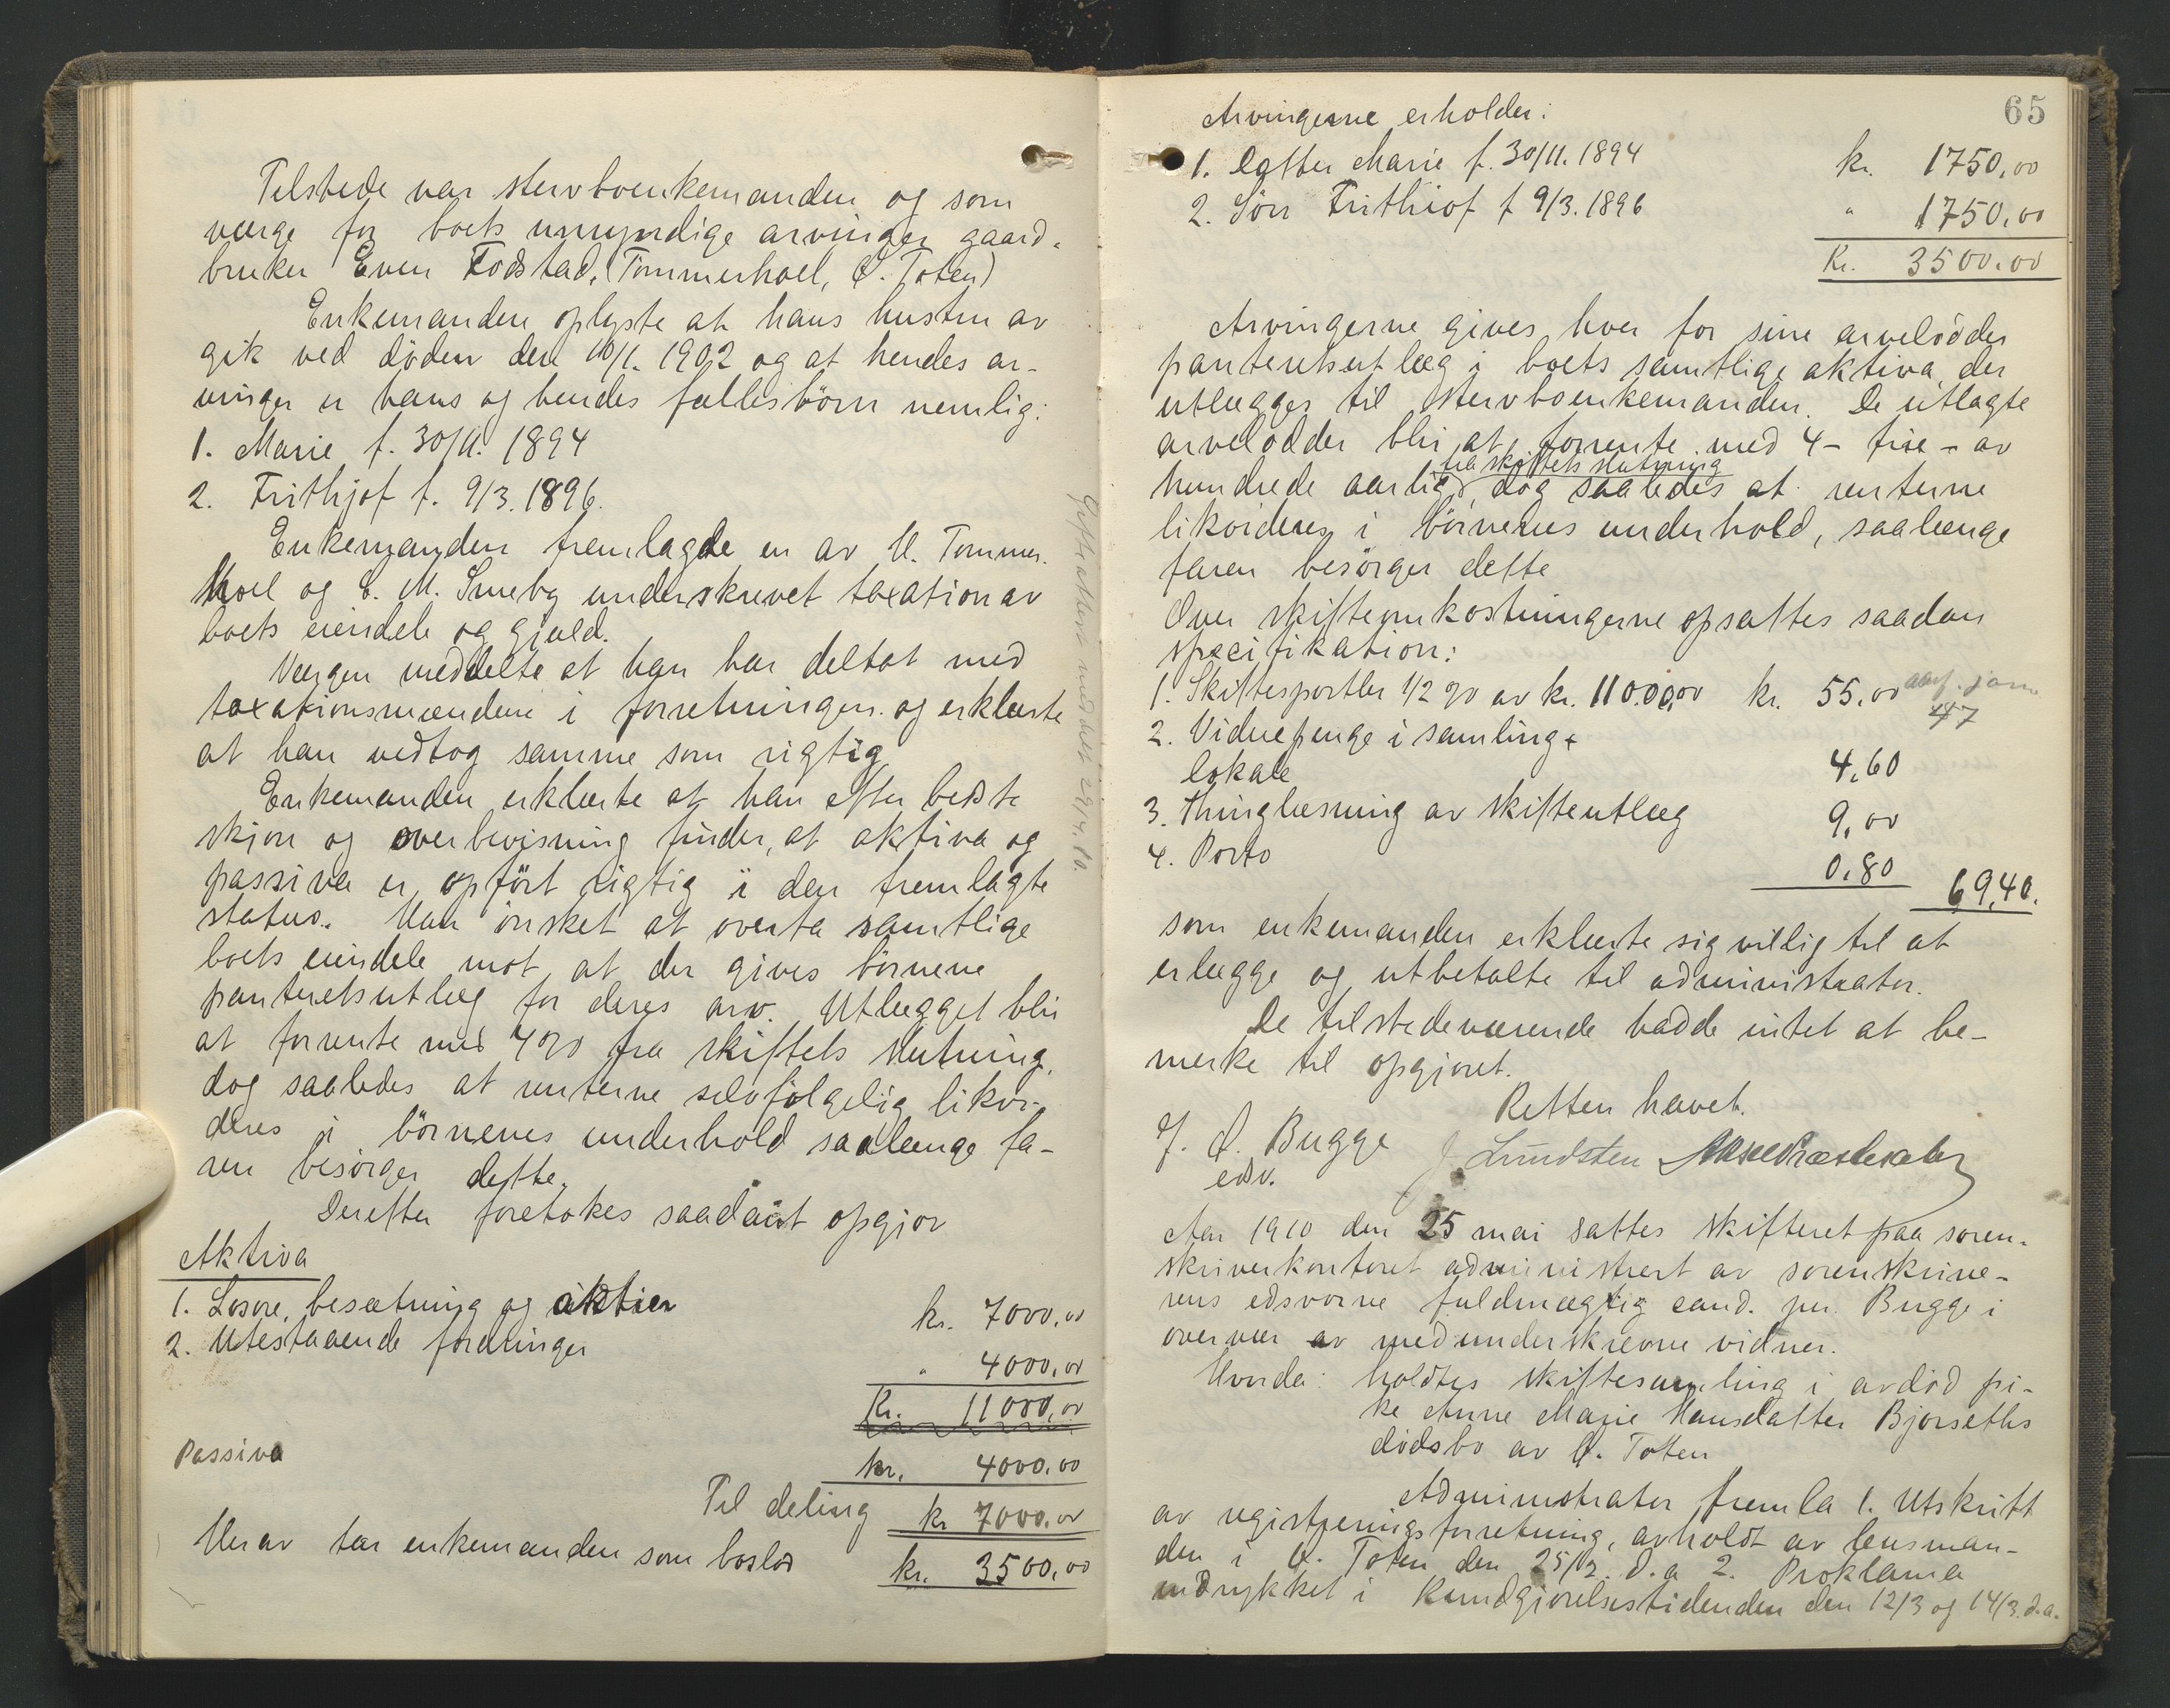 Tilstede var stervboenkemanden og som
værge for boets umyndige arvinger gaard-
bruker Even Fodstad, (Tommerhoel, Ø. Toten)
Enkemanden oplyste at hans hustru av
gik ved døden den 10/1. 1902 og at hendes ar-
vinger er hans og hendes fællesbörn nemlig:
1. Marie f. 30/11. 1894
2. Frithjof f. 9/3. 1896.
Enkemanden fremlagde en av H. Tommer-
hoel og E. M. Smeby underskrevet taxation av
boets eiendele og gjæld.
Værgen meddelte at han har deltat med
taxationsmændene i forretningen og erklærte
at han vedtog samme som rigtig
Enkemanden erklærte at han efter bedste
skjøn og overbevisning finder, at aktiva og
passiva er opfört rigtig i den fremlagte
status. Han önsket at overta samtlige
boets eiendele mot at der gives börnene
panteretsutlæg for deres arv. Utlægget blir
at forrente med 4 % fra skiftets slutning,
dog saaledes at renterne selvfölgelig likvi-
deres i börnenes underhold saalænge fa-
ren besörger dette.
Derefter foretokes saadant opgjør
Aktiva
1. Løsøre, besætning og aktier kr. 7000,00
2. Utestaaende fordringer " 4000,00
Kr. 11000,00
Passiva kr. 4000.00
Til deling kr 7000.00
Herav tar enkemanden som boslod kr. 3500,00
29/4. 10.
65
Arvingerne erholder:
1. Datter Marie f. 30/11. 1894 kr. 1750,00
2. Sön Frithiof f 9/3. 1896 " 1750,00
Kr. 3500.00
Arvingerne gives hver for sine arvelödder
panteretsutlæg i boets samtlige aktiva, der
utlægges til stervboenkemanden. De utlagte
arvelodder blir at forrente med 4 - fire - av
fra skiftets slutning
hundrede aarlig, dog saaledes at renterne
likvideres i börnenes underhold, saalænge
faren besörger dette
Over skifteomkostningerne opsattes saadan
specifikation:
1. Skiftesportler 1/2 % av kr. 11000,00 kr. 55,00
47
2. Vidnepenge i samling +
lokale 4,60
3. Thinglæsning av skifteutlæg 9,00
4. Porto 0,80 69,40.
som enkemanden erklærte sig villig til at
erlægge og utbetalte til administrator.
De tilstedeværende hadde intet at be-
merke til opgjøret.
Retten hævet.
J. A. Bugge
edsv.
J Lundsten
Aar 1910 den 25 mai sattes skifteret paa soren-
skriverkontoret administrert av sorenskrive-
rens edsvorne fuldmægtig cand. jur. Bugge i
overvær av medunderskrevne vidner.
Hvorda: holdtes skiftesamling i avdød pi-
ke Anne Marie Hansdatter Bjørseths
dødsbo av Ø. Toten
Administrator fremla 1. Utskrift
av registreringsforretning, avholdt av lensman-
den i Ø. Toten den 25/2. d. a 2. Proklama
indrykket i Kundgjørelsestidenden den 12/3 og 14/3. d.a.